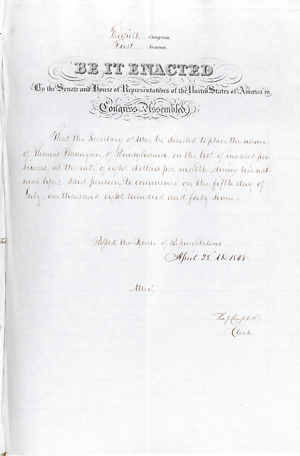 Thirtieth Congress,
First Session.
BE IT ENACTED
By the Senate and House of Representatives of the United States of America in
Congress Assembled
That the Secretary of War be directed to place the name
of Thomas Flanagan of Pennsylvania on the list of invalid pen
sioners, at the rate of eight dollars per month during his nat
ural life; Said pension to commence on the fifth day of
July one thousand eight hundred and forty seven.
Passed the House of Representatives.
April 28th 1848
Attest
Tho. J. Campbell
Clerk